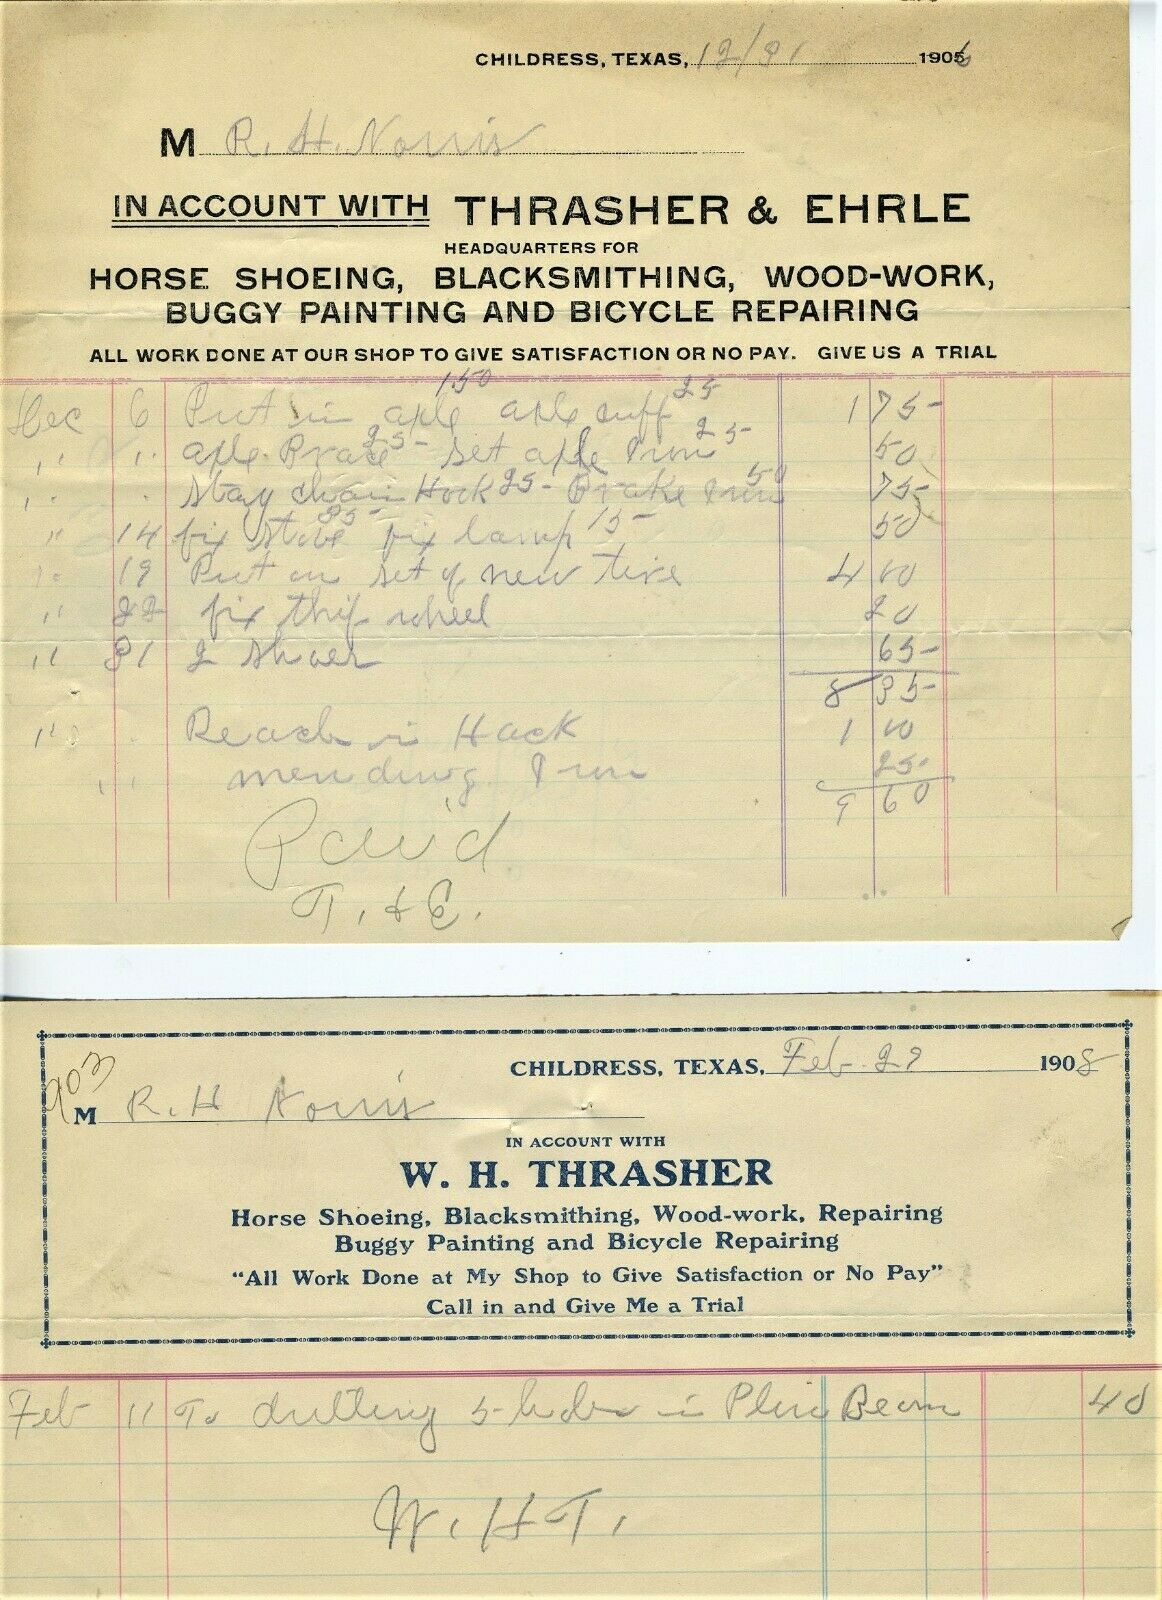 CHILDRESS, TEXAS, 12/31 1906
M R. H. Norris
IN ACCOUNT WITH THRASHER & EHRLE
HEADQUARTERS FOR
HORSE SHOEING, BLACKSMITHING, WOOD-WORK,
BUGGY PAINTING AND BICYCLE REPAIRING
ALL WORK DONE AT OUR SHOP TO GIVE SATISFACTION OR NO PAY. GIVE US A TRIAL
Dec 6 Put in axle 150 axle cuff 25 1 75
" " axle Brace 25 set axle Iron 25 50
" " stay chain Hook 25 Brake Iron 50 75
" 14 fix stove 35 fix lamp 15 50
" 19 Put on set of new tire 4 00
" 22 fix wheel 20
" 31 2 shoes 65
8 35
" Reach in Hack 1 00
" mending Iron 25
9 60
Paid
T. & E.
903
CHILDRESS, TEXAS, Feb 29 1908
M R. H Norris
IN ACCOUNT WITH
W. H. THRASHER
Horse Shoeing, Blacksmithing, Wood-work, Repairing
Buggy Painting and Bicycle Repairing
"All Work Done at My Shop to Give Satisfaction or No Pay"
Call in and Give Me a Trial
Feb 11 To drilling 5 holes in Beam 40
W. H T.